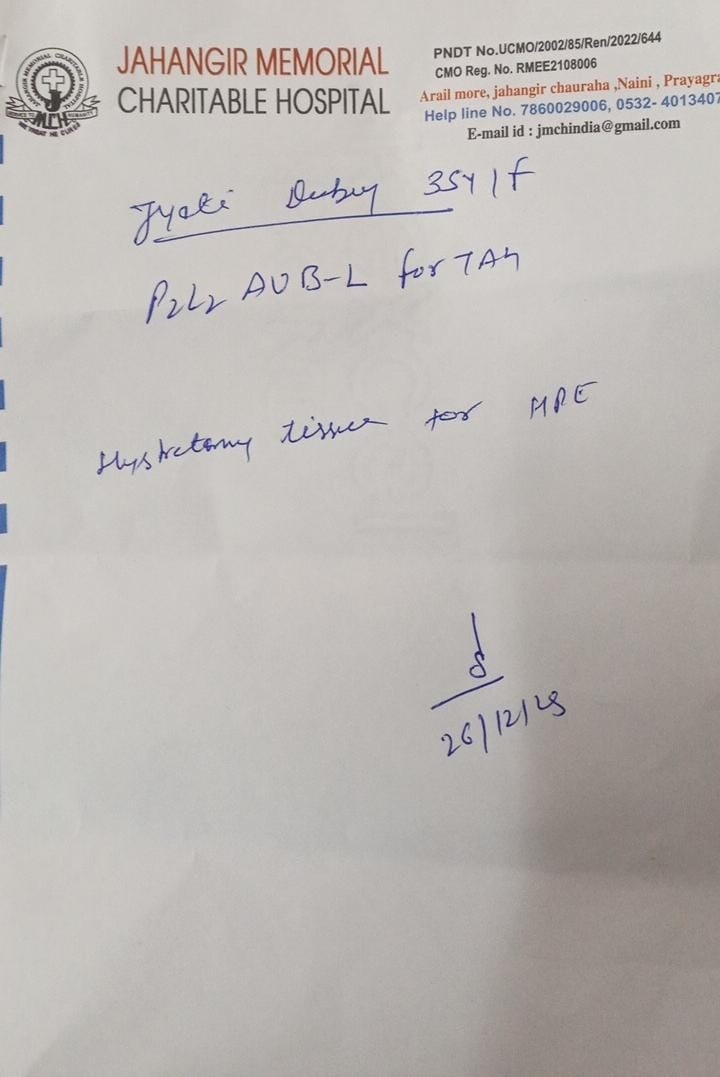 JAHANGIR MEMORIAL
CHARITABLE HOSPITAL
PNDT No.UCMO/2002/85/Ren/2022/644
CMO Reg. No. RMEE2108006
Arail more, jahangir chauraha ,Naini , Prayagra
Help line No. 7860029006, 0532- 4013407
E-mail id : jmchindia@gmail.com
Jyoti Dubey 35Y/F
P2L2 AUB-L for TAH
Hystrectomy tissue for HPE
26/12/25